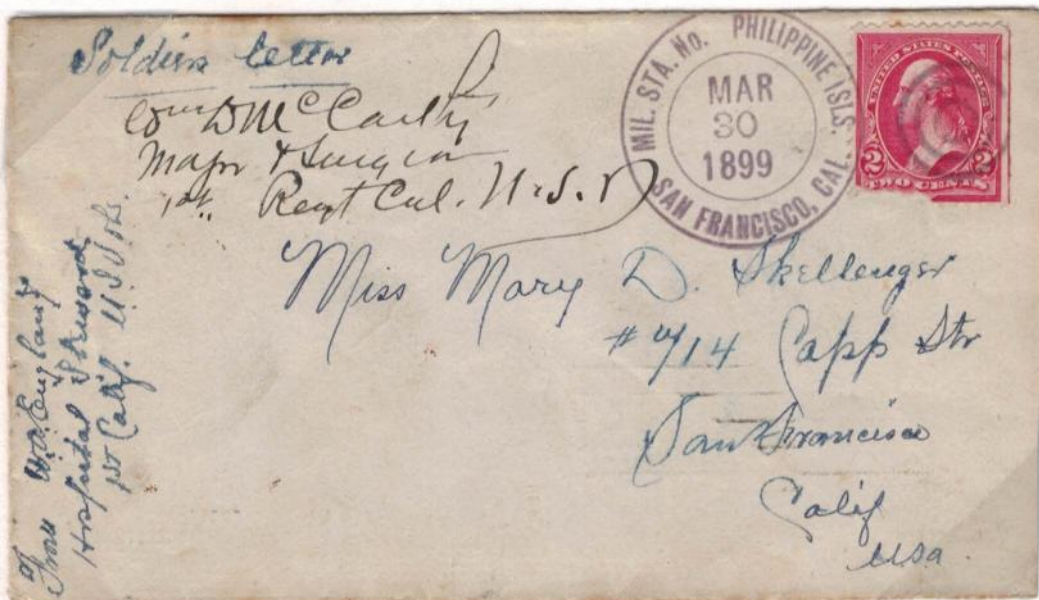 Soldiers letter
Wm D McCarthy
Major & Surgeon
1st Regt Cal. U.S.V
MIL. STA. No. PHILIPPINE ISLS.
MAR
30
1899
SAN FRANCISCO, CAL.
UNITED STATES POSTAGE
2 2
TWO CENTS
Miss Mary D. Skellenger
#714 Capp Str
San Francisco
Calif
USA
From England
Hospital Steward
1st Calif. U.S. Vols.